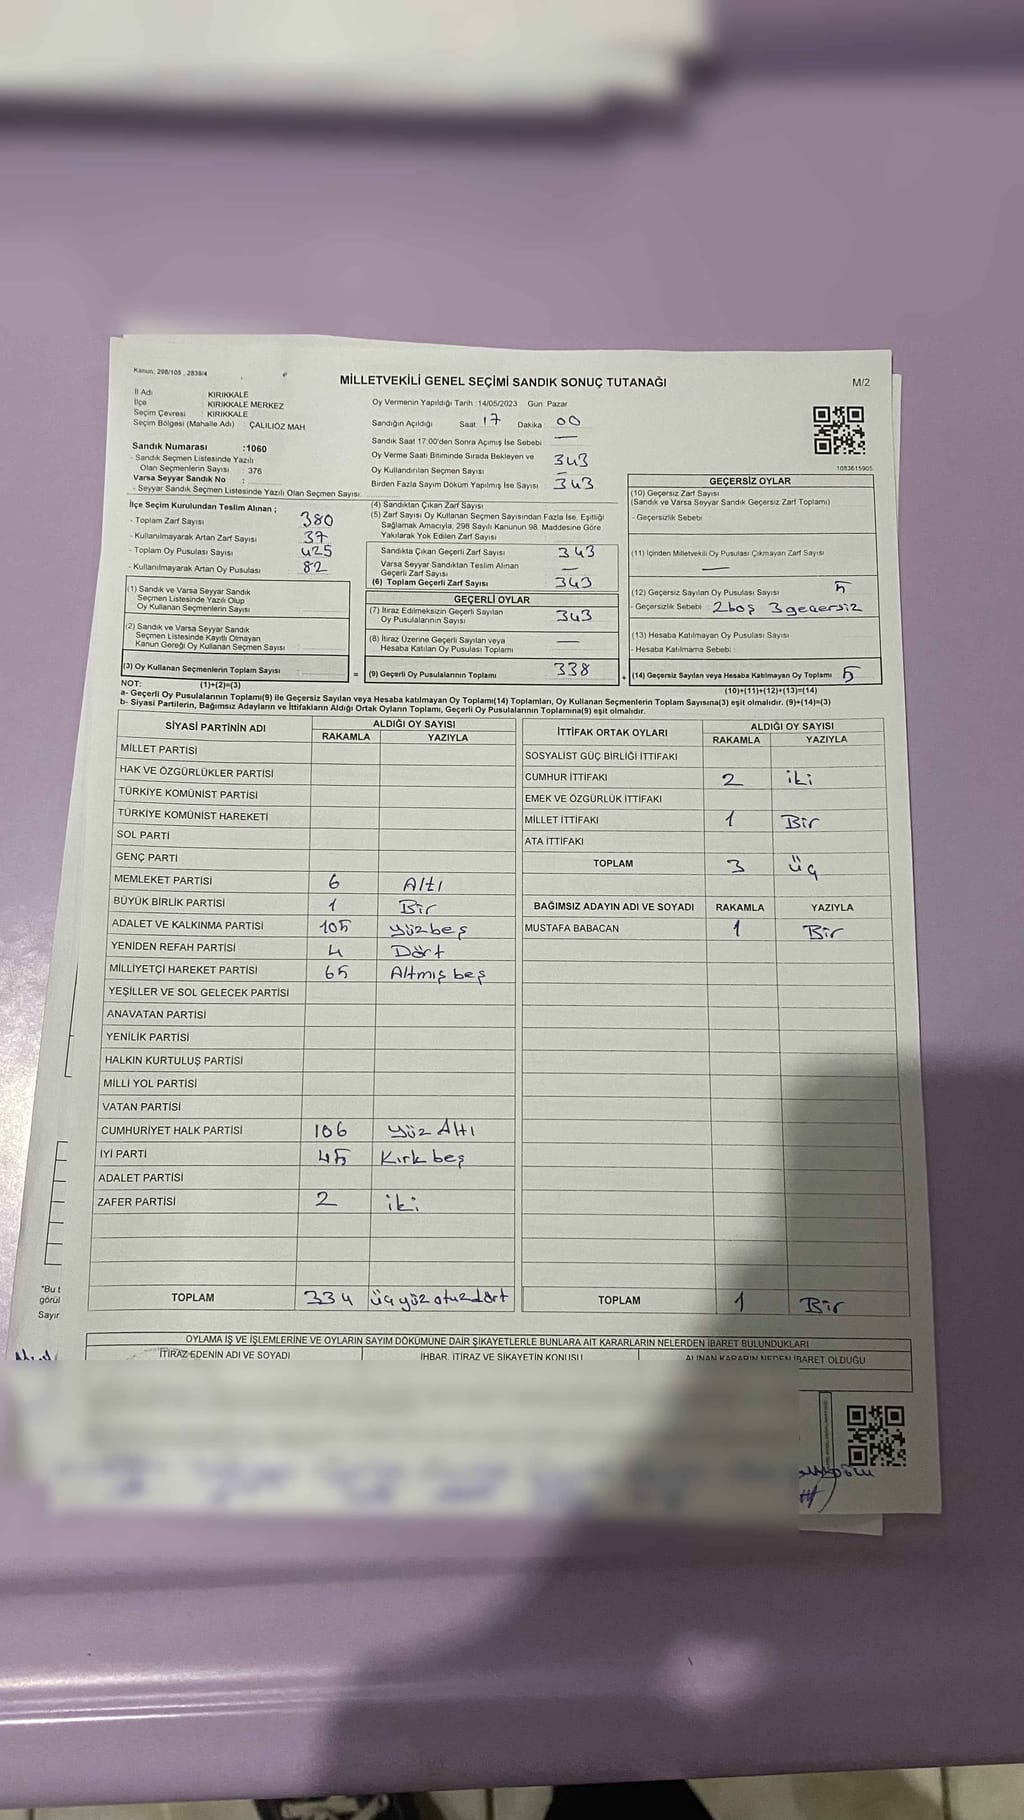 Kanun: 298/105 , 2839/4
MİLLETVEKİLİ GENEL SEÇİMİ SANDIK SONUÇ TUTANAĞI
M/2
İl Adı : KIRIKKALE
İlçe : KIRIKKALE MERKEZ
Seçim Çevresi : KIRIKKALE
Seçim Bölgesi (Mahalle Adı) : ÇALILIÖZ MAH
Sandık Numarası :1060
- Sandık Seçmen Listesinde Yazılı
Olan Seçmenlerin Sayısı : 376
Varsa Seyyar Sandık No :
- Seyyar Sandık Seçmen Listesinde Yazılı Olan Seçmen Sayısı:
Oy Vermenin Yapıldığı Tarih :14/05/2023 Gün: Pazar
Sandığın Açıldığı Saat 17 Dakika 00
Sandık Saat 17:00'den Sonra Açımış İse Sebebi —
Oy Verme Saati Bitiminde Sırada Bekleyen ve 343
Oy Kullandırılan Seçmen Sayısı —
Birden Fazla Sayım Döküm Yapılmış İse Sayısı 343
1083615905
İlçe Seçim Kurulundan Teslim Alınan ;
- Toplam Zarf Sayısı 380
- Kullanılmayarak Artan Zarf Sayısı 37
- Toplam Oy Pusulası Sayısı 425
- Kullanılmayarak Artan Oy Pusulası 82
(1) Sandık ve Varsa Seyyar Sandık
Seçmen Listesinde Yazılı Olup
Oy Kullanan Seçmenlerin Sayısı
(2) Sandık ve Varsa Seyyar Sandık
Seçmen Listesinde Kayıtlı Olmayan
Kanun Gereği Oy Kullanan Seçmen Sayısı
(3) Oy Kullanan Seçmenlerin Toplam Sayısı
(4) Sandıktan Çıkan Zarf Sayısı
(5) Zarf Sayısı Oy Kullanan Seçmen Sayısından Fazla İse, Eşitliği
Sağlamak Amacıyla, 298 Sayılı Kanunun 98. Maddesine Göre
Yakılarak Yok Edilen Zarf Sayısı
Sandıkta Çıkan Geçerli Zarf Sayısı 343
Varsa Seyyar Sandıktan Teslim Alınan
Geçerli Zarf Sayısı —
(6) Toplam Geçerli Zarf Sayısı 343
GEÇERLİ OYLAR
(7) İtiraz Edilmeksizin Geçerli Sayılan
Oy Pusulalarının Sayısı 343
(8) İtiraz Üzerine Geçerli Sayılan veya
Hesaba Katılan Oy Pusulası Toplamı —
= (9) Geçerli Oy Pusulalarının Toplamı 338
GEÇERSİZ OYLAR
(10) Geçersiz Zarf Sayısı
(Sandık ve Varsa Seyyar Sandık Geçersiz Zarf Toplamı)
- Geçersizlik Sebebi
(11) İçinden Milletvekili Oy Pusulası Çıkmayan Zarf Sayısı
—
(12) Geçersiz Sayılan Oy Pusulası Sayısı 5
- Geçersizlik Sebebi : 2 boş 3 geçersiz
(13) Hesaba Katılmayan Oy Pusulası Sayısı
- Hesaba Katılmama Sebebi :
+ (14) Geçersiz Sayılan veya Hesaba Katılmayan Oy Toplamı 5
NOT: (1)+(2)=(3)
(10)+(11)+(12)+(13)=(14)
a- Geçerli Oy Pusulalarının Toplamı(9) ile Geçersiz Sayılan veya Hesaba katılmayan Oy Toplamı(14) Toplamları, Oy Kullanan Seçmenlerin Toplam Sayısına(3) eşit olmalıdır. (9)+(14)=(3)
b- Siyasi Partilerin, Bağımsız Adayların ve İttifakların Aldığı Ortak Oyların Toplamı, Geçerli Oy Pusulalarının Toplamına(9) eşit olmalıdır.
SİYASİ PARTİNİN ADI
ALDIĞI OY SAYISI
RAKAMLA YAZIYLA
MİLLET PARTİSİ
HAK VE ÖZGÜRLÜKLER PARTİSİ
TÜRKİYE KOMÜNİST PARTİSİ
TÜRKİYE KOMÜNİST HAREKETİ
SOL PARTİ
GENÇ PARTİ
MEMLEKET PARTİSİ 6 Altı
BÜYÜK BİRLİK PARTİSİ 1 Bir
ADALET VE KALKINMA PARTİSİ 105 Yüzbeş
YENİDEN REFAH PARTİSİ 4 Dört
MİLLİYETÇİ HAREKET PARTİSİ 65 Altmış beş
YEŞİLLER VE SOL GELECEK PARTİSİ
ANAVATAN PARTİSİ
YENİLİK PARTİSİ
HALKIN KURTULUŞ PARTİSİ
MİLLİ YOL PARTİSİ
VATAN PARTİSİ
CUMHURİYET HALK PARTİSİ 106 Yüz Altı
İYİ PARTİ 45 Kırk beş
ADALET PARTİSİ
ZAFER PARTİSİ 2 iki
TOPLAM 334 üçyüz otuzdört
İTTİFAK ORTAK OYLARI
ALDIĞI OY SAYISI
RAKAMLA YAZIYLA
SOSYALİST GÜÇ BİRLİĞİ İTTİFAKI
CUMHUR İTTİFAKI 2 iki
EMEK VE ÖZGÜRLÜK İTTİFAKI
MİLLET İTTİFAKI 1 Bir
ATA İTTİFAKI
TOPLAM 3 üç
BAĞIMSIZ ADAYIN ADI VE SOYADI RAKAMLA YAZIYLA
MUSTAFA BABACAN 1 Bir
TOPLAM 1 Bir
"Bu t
görül
Sayır
OYLAMA İŞ VE İŞLEMLERİNE VE OYLARIN SAYIM DÖKÜMÜNE DAİR ŞİKAYETLERLE BUNLARA AİT KARARLARIN NELERDEN İBARET BULUNDUKLARI
İTİRAZ EDENİN ADI VE SOYADI
İHBAR, İTİRAZ VE ŞİKAYETİN KONUSU
ALINAN KARARIN NEDEN İBARET OLDUĞU